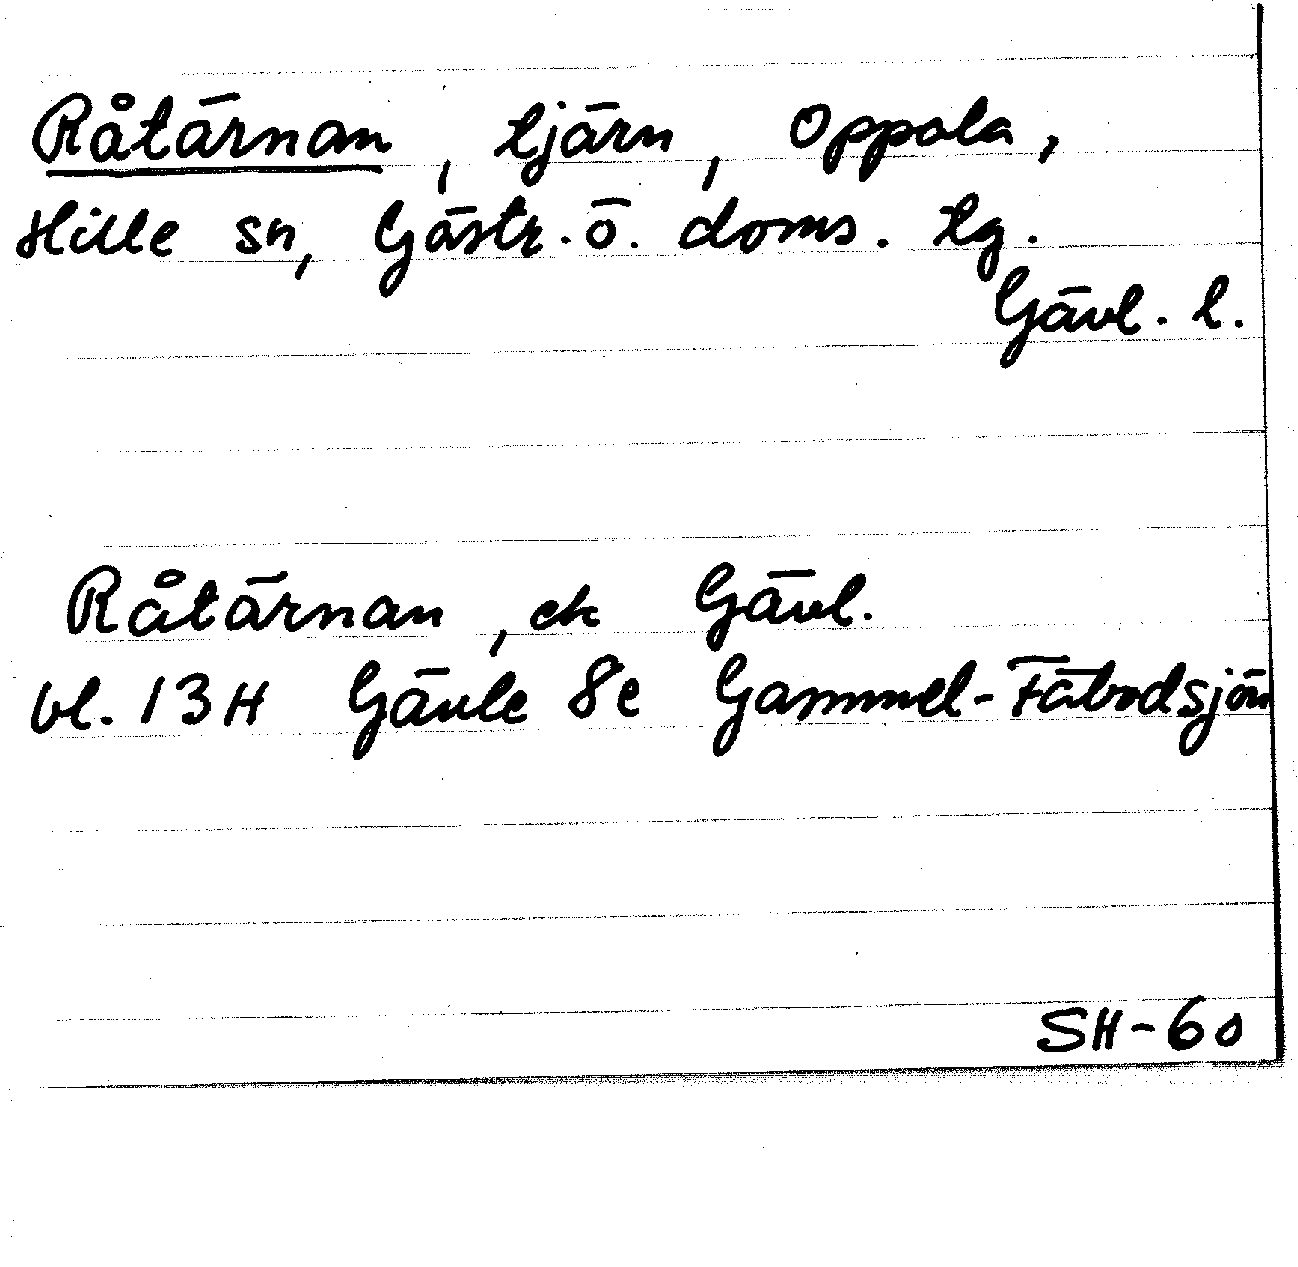 Råtärnan, tjärn, Oppala,
Hille sn, Gästr. ö. doms. tg.
Gävl. l.
Råtärnan, ek Gävl.
bl. 13H Gävle 8e Gammel-Fäbodsjön
SH-60